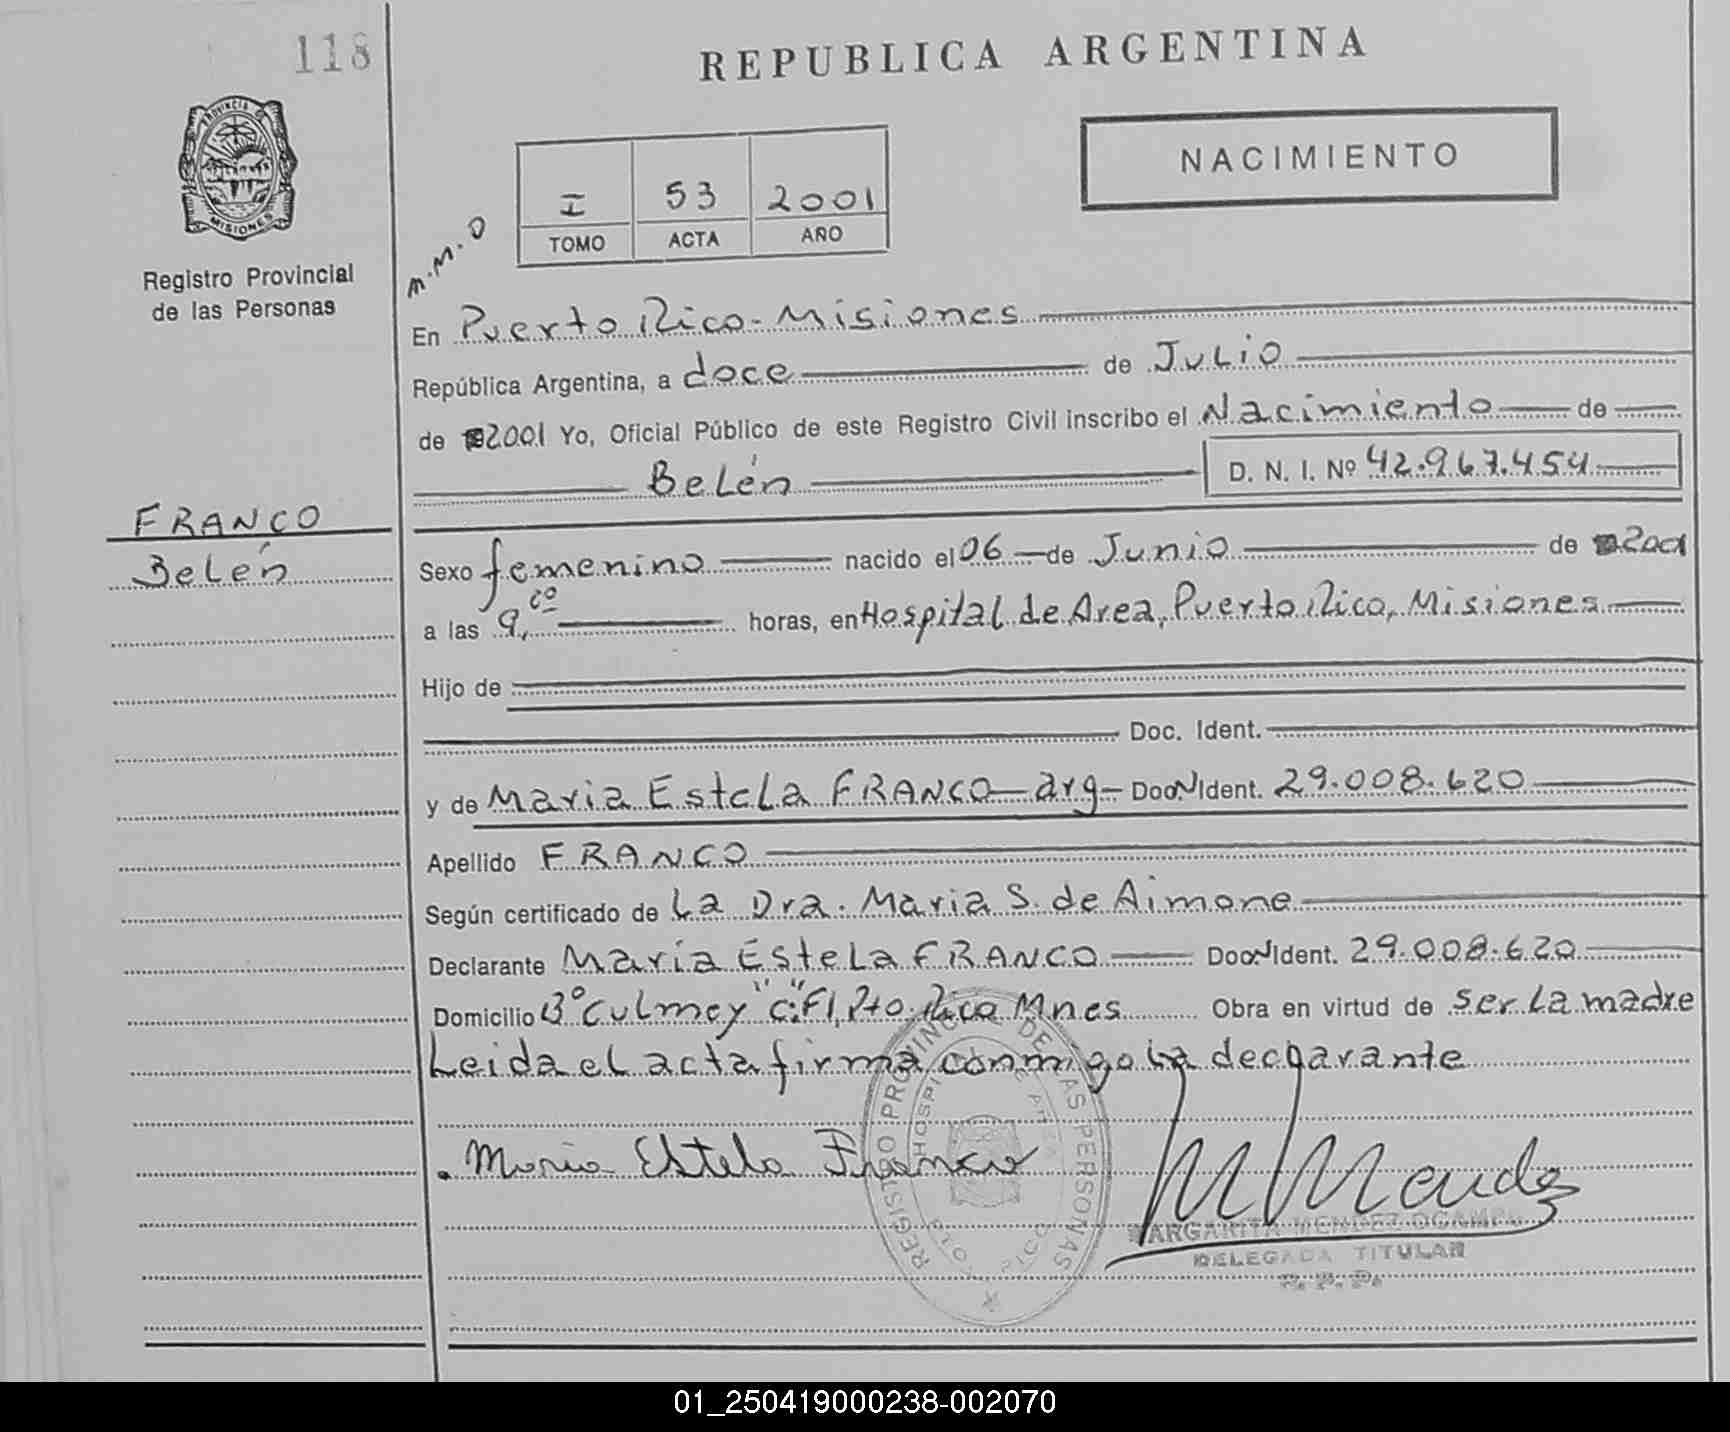 118
REPUBLICA ARGENTINA
PROVINCIA DE
MISIONES
Registro Provincial
de las Personas
NACIMIENTO
I 53 2001
TOMO ACTA AÑO
M.M.O
En Puerto Rico - Misiones
República Argentina, a doce de Julio
de 2001 Yo, Oficial Público de este Registro Civil inscribo el Nacimiento de
Belén D. N. I. Nº 42.967.454
FRANCO
Belén
Sexo femenino nacido el 06 de Junio de 2001
a las 9, horas, en Hospital de Area, Puerto Rico, Misiones
Hijo de
Doc. Ident.
y de Maria Estela FRANCO - arg - Doc. Ident. 29.008.620
Apellido FRANCO
Según certificado de La Dra. Maria S. de Aimone
Declarante María Estela FRANCO Doc. Ident. 29.008.620
Domicilio Bº Culmey "C:F", Pto. Rico Mnes Obra en virtud de ser La madre
Leida el acta firma conmigo la declarante
Maria Estela Franco
REGISTRO PROVINCIAL DE LAS PERSONAS
M Mendez
MARGARITA MENDEZ OCAMPO
DELEGADA TITULAR
R. P. P.
01_250419000238-002070